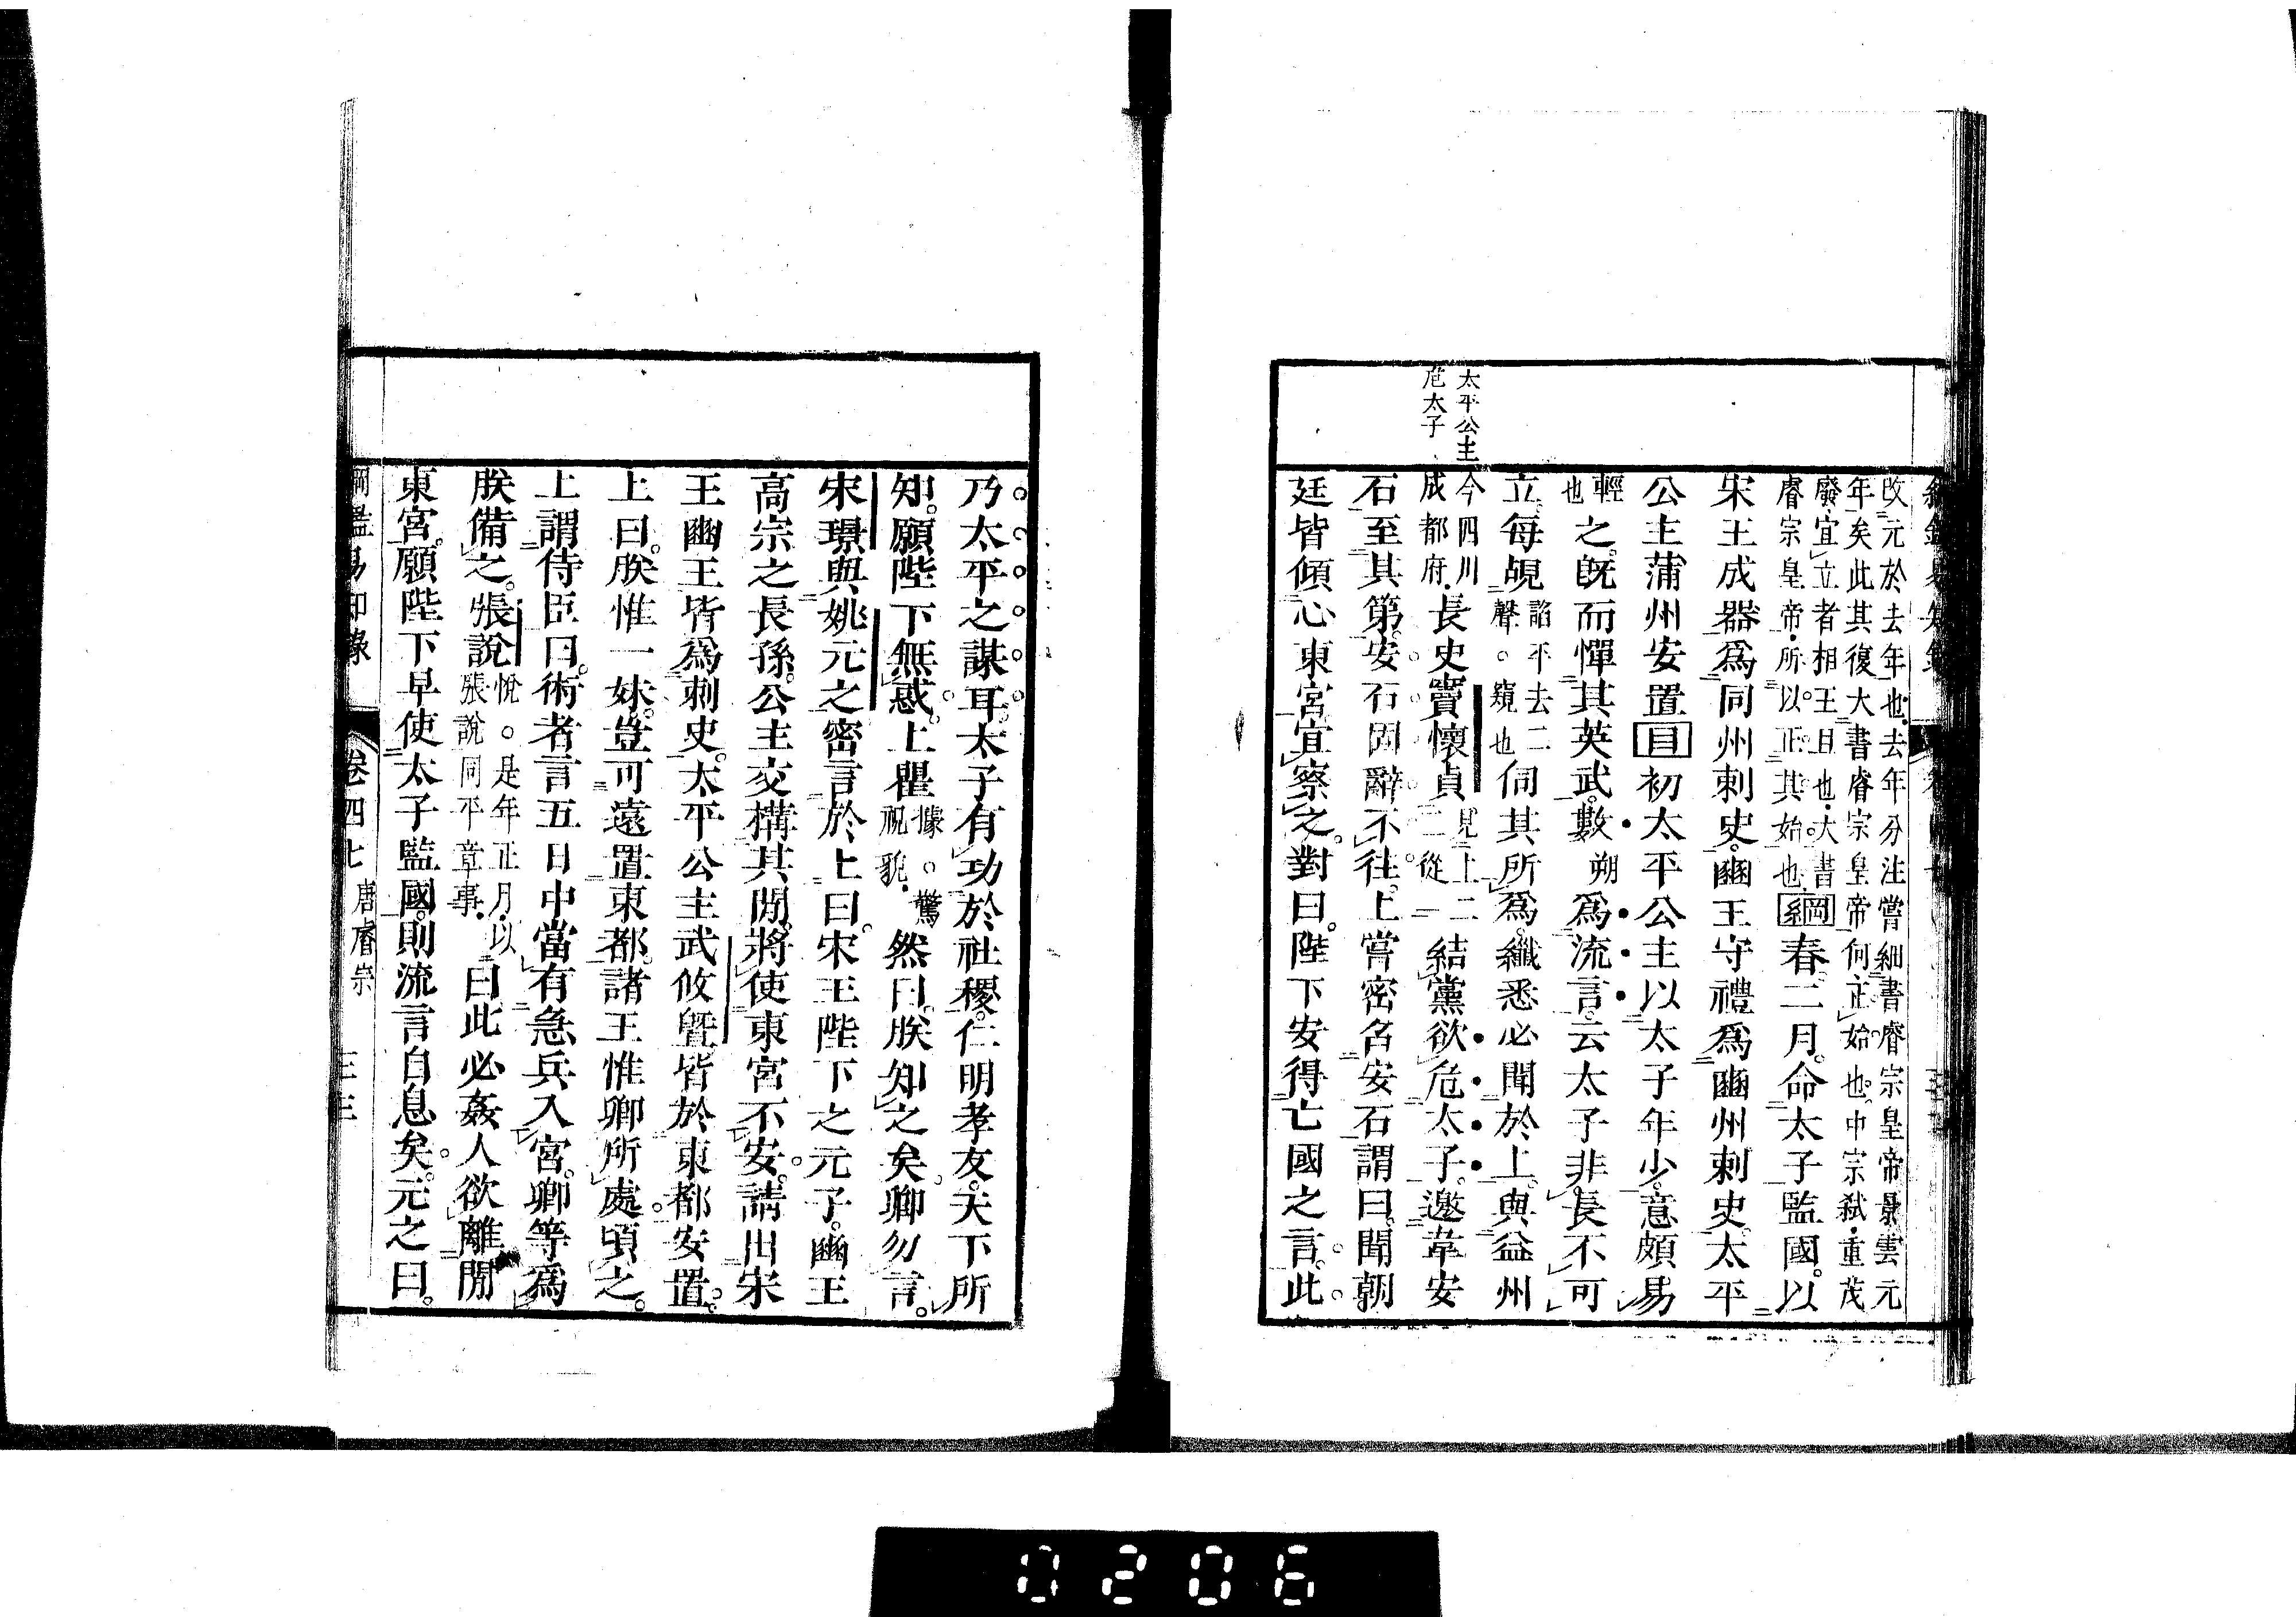 太平公主
危太子
改元於去年也去年分注嘗細書睿宗皇帝景雲元
年矣此其復大書睿宗皇帝何正始也中宗弑重茂
廢宜立者相王旦也大書
睿宗皇帝所以正其始也綱春二月命太子監國以
宋王成器為同州刺史豳王守禮為豳州刺史太平
公主蒲州安置目初太平公主以太子年少意頗易
輕也之旣而憚其英武數朔為流言云太子非長不可
立每覘諂平去二聲。窺也伺其所為纖悉必聞於上與益州
今四川成都府長史竇懷貞見上二二從結黨欲危太子邀韋安
石至其第安石固辭不往上嘗密召安石謂曰聞朝
廷皆傾心東宮宜察之對曰陛下安得亡國之言此
乃太平之謀耳太子有功於社稷仁明孝友天下所
知願陛下無惑上瞿據。驚視貌然曰朕知之矣卿勿言
宋璟與姚元之密言於上曰宋王陛下之元子豳王
高宗之長孫公主交構其閒將使東宮不安請出宋
王豳王皆為刺史太平公主武攸曁皆於東都安置
上曰朕惟一妹豈可遠置東都諸王惟卿所處頃之
上謂侍臣曰術者言五日中當有急兵入宮卿等為
朕備之張說悅。是年正月以張說同平章事曰此必姦人欲離閒
東宮願陛下早使太子監國則流言自息矣元之曰
綱鑑易知錄 卷四七 唐睿宗 三三
0206